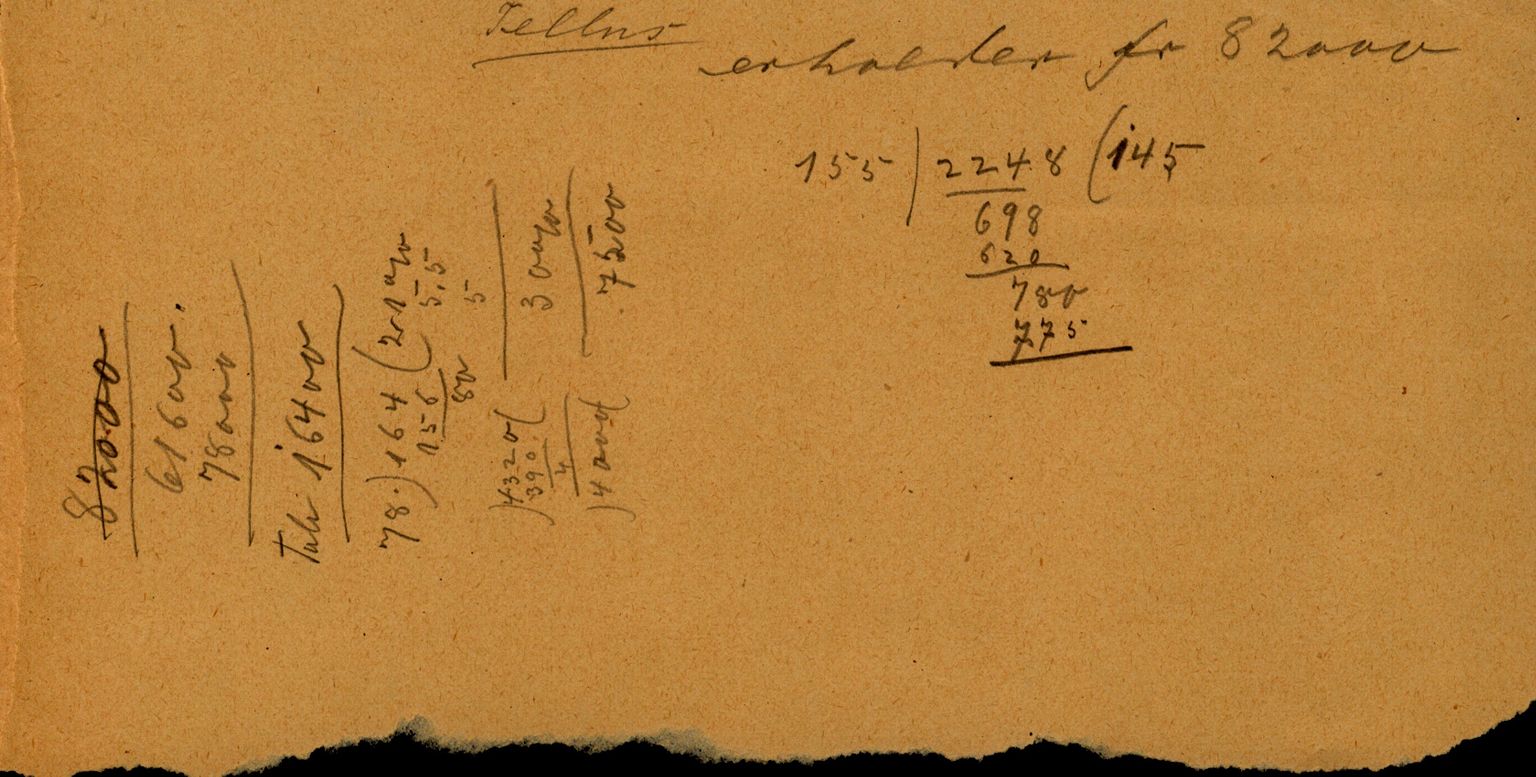 Tellus
erholder fr 82000
155 ) 2248 ( 145
698
620
780
775
82000
61600.
78000
16400
78.) 164 (
156
5,5
80
5
4320
390
4
4000
7500